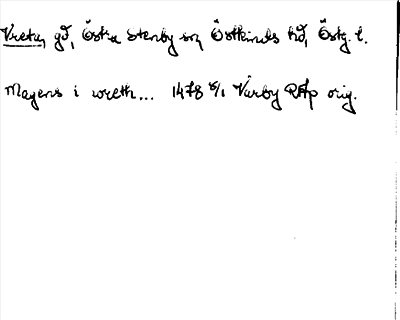 Vreta, gd, Östra Stenby sn, Östkinds hd, Östg. l.
Magens i wreth... 1478 5/1 Vårby RAp orig.